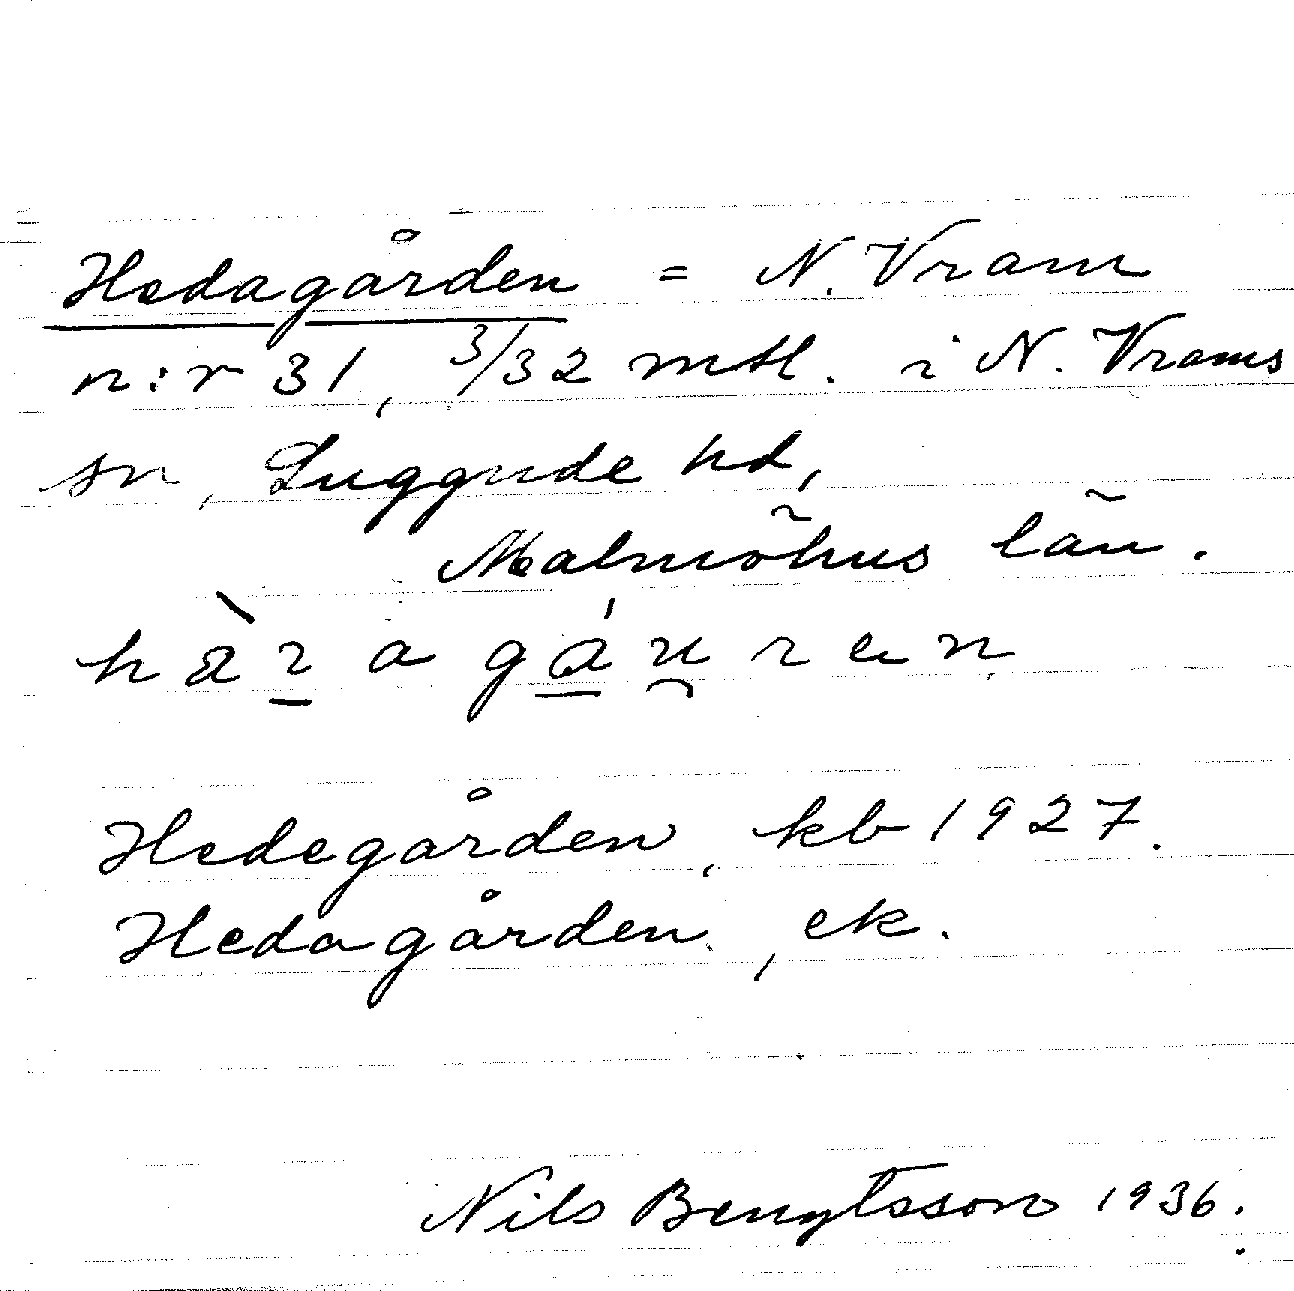 Hedagården = N. Vram
n:r 31, 3/32 mtl. i N. Vrams
sn, Luggude hd,
Malmöhus län.
Hedegården, kb 1927.
Hedagården, ek.
Nils Bengtsson 1936.